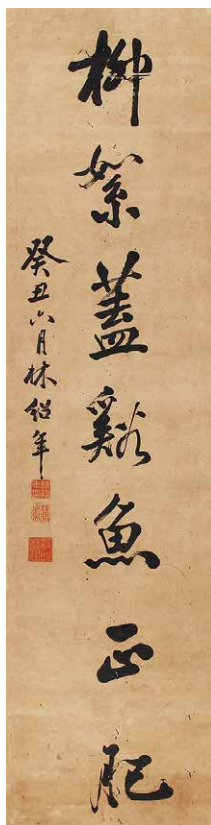 柳絮蓋谿魚正肥
癸丑六月林紹年